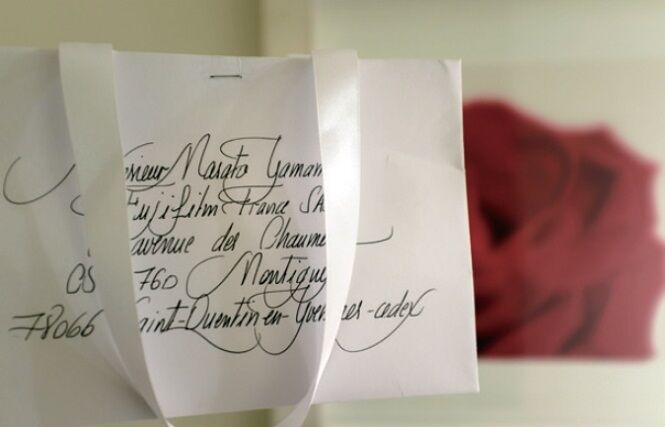 sieur Masato Yamam
Fujifilm France SA
avenue des Chaume
CS 760 Montigny
78066 Saint-Quentin-en-Yvelines-cedex